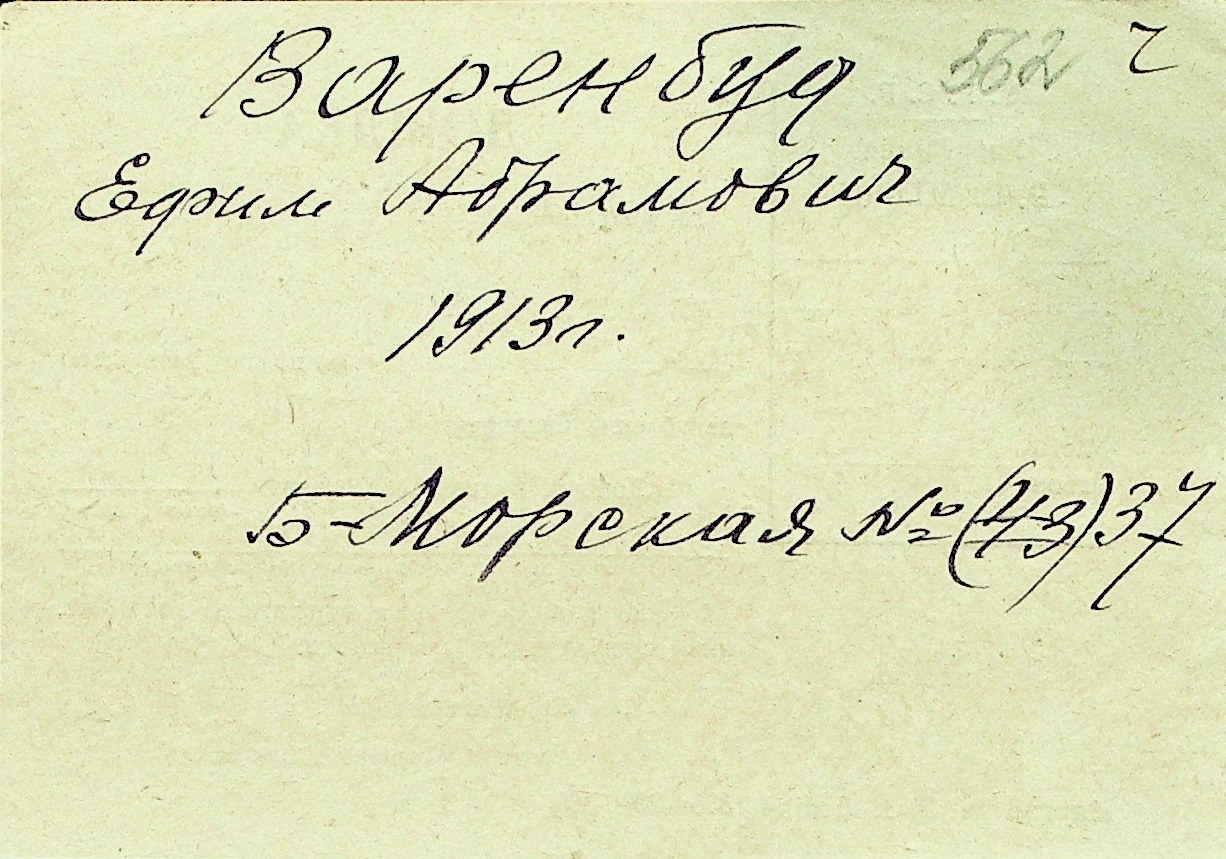 Варенбуд 562 ч
Ефим Абрамович
1913г.
Б-Морская № (43) 37